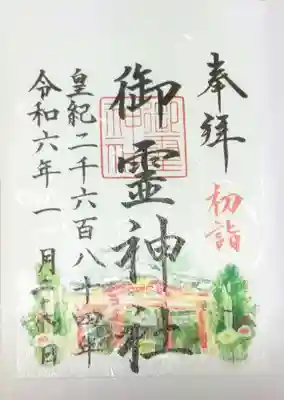 奉拝
初詣
御霊神社
皇紀二千六百八十四年
令和六年一月二十八日